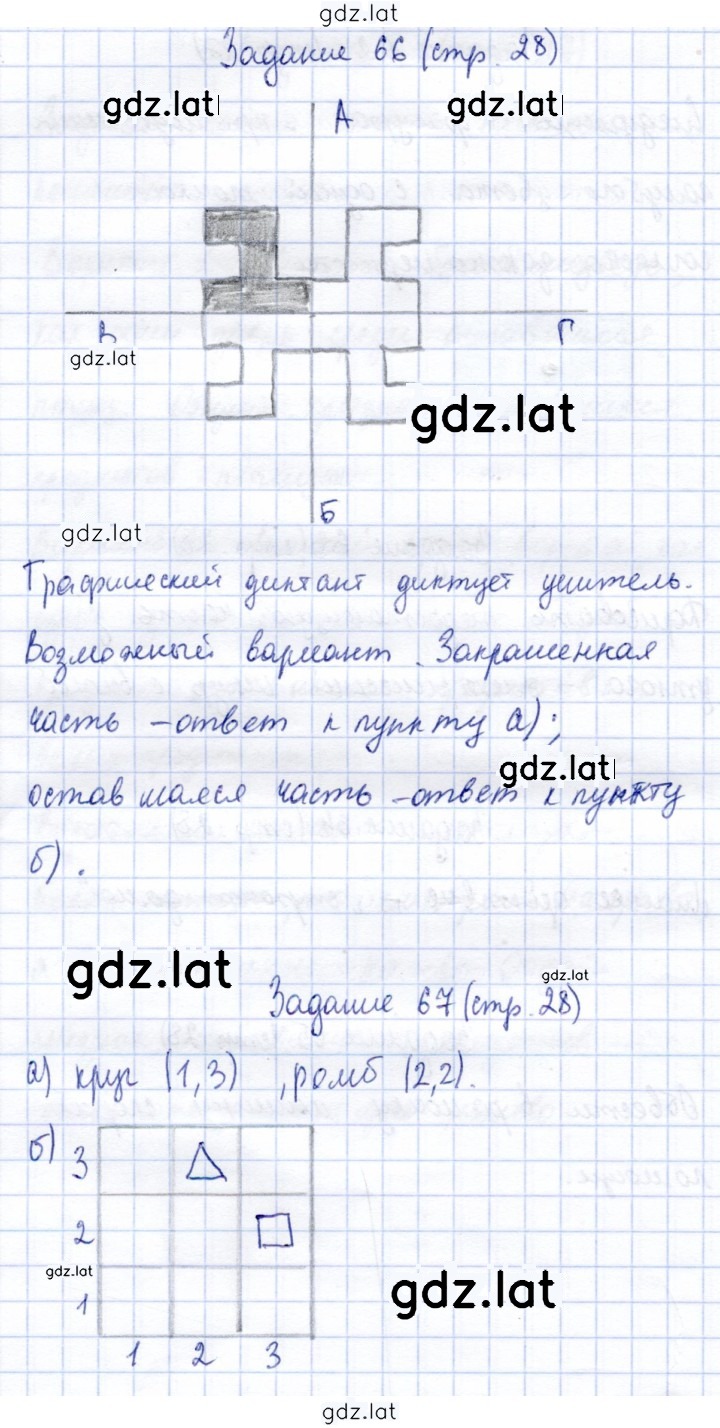 gdz.lat
Задание 66 (стр. 28)
gdz.lat gdz.lat
А
В Г
gdz.lat
gdz.lat
Б
gdz.lat
Графический диктант диктует учитель.
Возможный вариант. Закрашенная
часть – ответ к пункту а);
gdz.lat
оставшаяся часть – ответ к пункту
б).
gdz.lat
gdz.lat
Задание 67 (стр. 28)
а) круг (1,3), ромб (2,2).
б) 3
2
gdz.lat
gdz.lat
1
1 2 3
gdz.lat